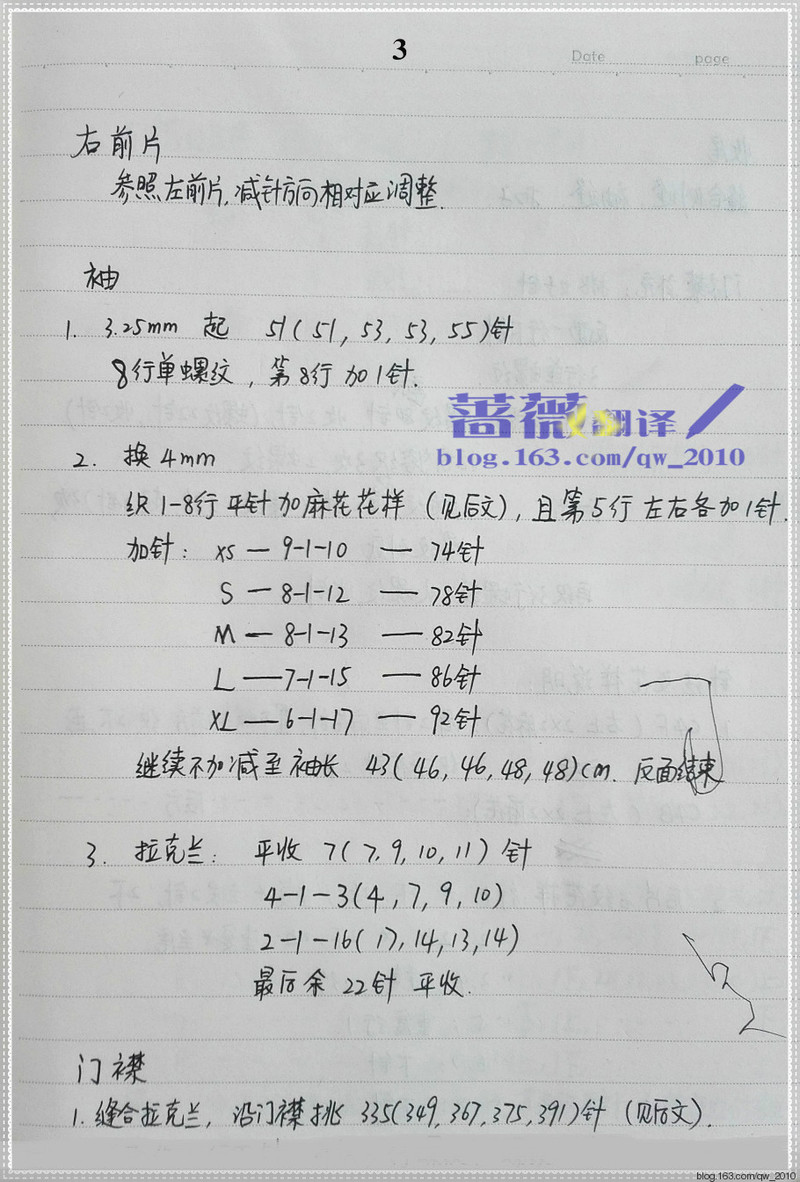 3
Date
page
右前片
参照左前片,减针方向相对应调整.
袖
1. 3.25mm 起 51(51, 53, 53, 55)针
8行单螺纹, 第8行加1针.
蔷薇 翻译
blog.163.com/qw_2010
2. 换4mm
织1-8行平针加麻花花样 (见后文), 且第5行左右各加1针.
加针: XS — 9-1-10 — 74针
S — 8-1-12 — 78针
M — 8-1-13 — 82针
L — 7-1-15 — 86针
XL — 6-1-17 — 92针
继续不加减至袖长 43(46, 46, 48, 48)cm. 反面结束
3. 拉克兰: 平收 7(7, 9, 10, 11)针
4-1-3(4, 7, 9, 10)
2-1-16(17, 14, 13, 14)
最后余22针 平收.
门襟
1. 缝合拉克兰, 沿门襟挑 335(349, 367, 375, 391)针 (见后文).
blog.163.com/qw_2010